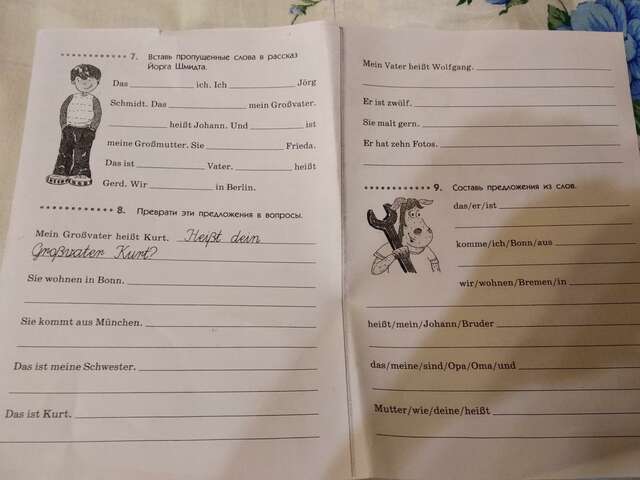 7. Вставь пропущенные слова в рассказ
Йорга Шмидта.
Das ____________ ich. Ich ____________ Jörg
Schmidt. Das ____________ mein Großvater.
____________ heißt Johann. Und ____________ ist
meine Großmutter. Sie ____________ Frieda.
Das ist ____________ Vater. ____________ heißt
Gerd. Wir ____________ in Berlin.
8. Преврати эти предложения в вопросы.
Mein Großvater heißt Kurt. Heißt dein
Großvater Kurt?
Sie wohnen in Bonn.
Sie kommt aus München.
Das ist meine Schwester.
Das ist Kurt.
Mein Vater heißt Wolfgang.
Er ist zwülf.
Sie malt gern.
Er hat zehn Fotos.
9. Составь предложения из слов.
das/er/ist
komme/ich/Bonn/aus
wir/wohnen/Bremen/in
heißt/mein/Johann/Bruder
das/meine/sind/Opa/Oma/und
Mutter/wie/deine/heißt